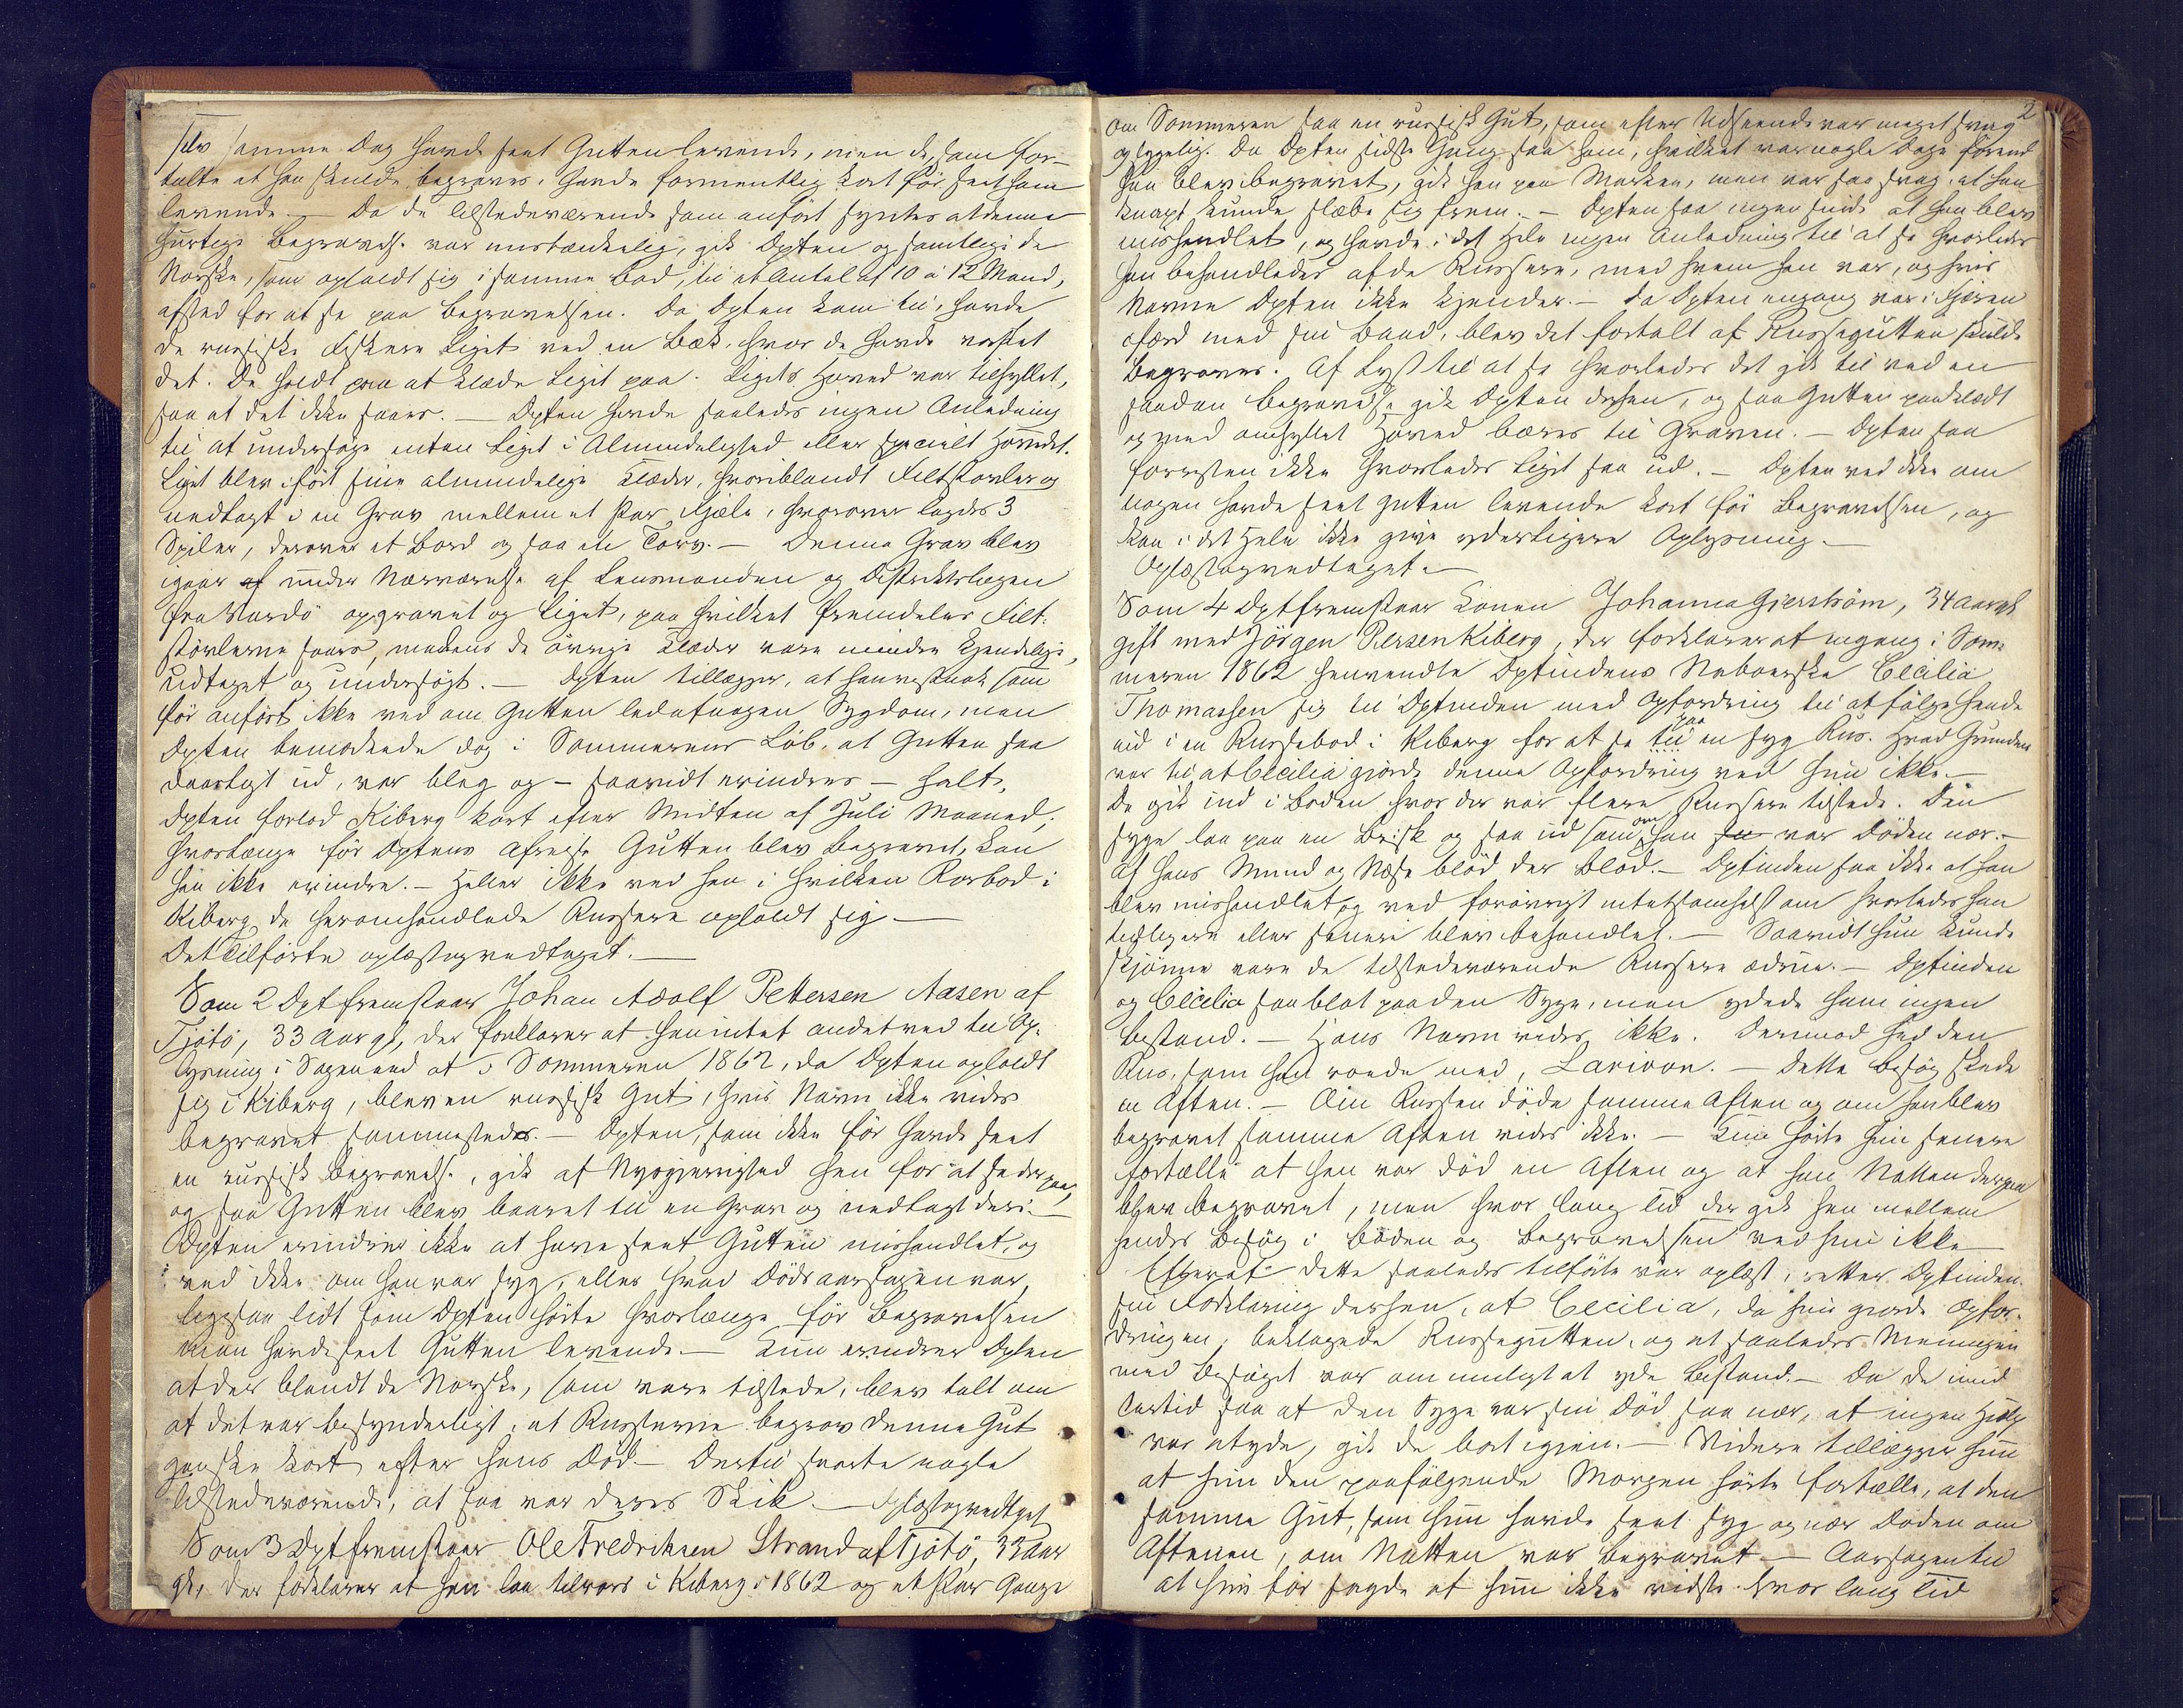 selv samme Dag havde seet Gutten levende, men de, som for-
talte at han skulde begraves, havde formentlig kort før seet ham
levende. — Da de Tilstedeværende som anført syntes at denne
hurtige Begravelse var mistænkelig, gik Dpten og samtlige de
Norske, som opholdt sig i samme Bod, til et Antal af 10 à 12 Mand,
afsted for at se paa Begravelsen. Da Dpten kom til, havde
de russiske Fiskere Liget ved en Bæk, hvor de havde vasket
det. De holdt paa at klæde Liget paa. Ligets Hoved var tilhyllet,
saa at det ikke saaes. — Dpten havde saaledes ingen Anledning
til at undersøge enten Liget i Almindelighed eller specielt Hovedet.
Liget blev iført sine almindelige Klæder, hvoriblandt Filtstøvler og
nedlagt i en Grav mellem et Par Fjæle, hvorover lagdes 3
Spiler, derover et Bord og saa en Torv. — Denne Grav blev
igaar af under Nærværelse af Lensmanden og Distriktslægen
fra Vardø opgravet og Liget, paa hvilket fremdeles Filt-
støvlerne saaes, medens de øvrige Klæder vare mindre kjendelige,
udtaget og undersøgt. — Dpten tillægger, at han som
før anført ikke ved om Gutten led af nogen Sygdom, men
Dpten bemærkede dog i Sommerens Løb, at Gutten saa
daarligt ud, var bleg og — saavidt erindres — halt.
Dpten forlod Kiberg kort efter Midten af Juli Maaned;
hvorlænge før Dptens Afreise Gutten blev begravet, kan
han ikke erindre. — Heller ikke ved han i hvilken Rorbod i
Kiberg de heromhandlede Russere opholdt sig —
Det Tilførte oplæst og vedtaget. —
Som 2 Dpt fremstaar Johan Adolf Pettersen Aasen af
Tjøtø, 33 Aar gl, der forklarer at han intet andet ved til Op-
lysning i Sagen end at i Sommeren 1862, da Dpten opholdt
sig i Kiberg, blev en russisk Gut, hvis Navn ikke vides
begravet sammesteds. — Dpten, som ikke før havde seet
en russisk Begravelse, gik af Nysgjerrighed hen for at se derpaa,
og saa Gutten blev baaret til en Grav og nedlagt deri. —
Dpten erindrer ikke at have seet Gutten mishandlet, og
ved ikke om han var syg, eller hvad Dødsaarsagen var,
ligesaa lidt som Dpten hørte hvorlænge før Begravelsen
man havde seet Gutten levende. — Kun erindrer Dpten
at der blandt de Norske, som vare tilstede, blev talt om
at det var besynderligt, at Russerne begrov denne Gut
ganske kort efter hans Død. — Dertil svarte nogle
Tilstedeværende, at saa var deres Skik. — Oplæst og vedtaget
Som 3 Dpt fremstaar Ole Fredriksen Strand af Tjøtø, 33 Aar
gl, der forklarer at han laa tilrors i Kiberg i 1862 og et Par Gange
2
om Sommeren saa en russisk Gut, som efter Udseende var meget svag
og sygelig. Da Dpten sidste Gang saa ham, hvilket var nogle Dage førend
han blev begravet, gik han paa Marken, men var saa svag, at han
knapt kunde slæbe sig frem. — Dpten saa ingensinde at han blev
mishandlet, og havde i det Hele ingen Anledning til at se hvorledes
han behandledes af de Russere, med hvem han var, og hvis
Navne Dpten ikke kjender. — Da Dpten engang var i Fjæren
ifærd med sin Baad, blev det fortalt at Russegutten skulde
begraves. Af Lyst til at se hvorledes det gik til ved en
saadan Begravelse gik Dpten derhen, og saa Gutten paaklædt
og med omhyllet Hoved bæres til Graven. — Dpten saa
forresten ikke hvorledes Liget saa ud. — Dpten ved ikke om
nogen havde seet Gutten levende kort før Begravelsen, og
kan i det Hele ikke give yderligere Oplysning. —
Oplæst og vedtaget. —
Som 4 Dpt fremstaar Konen Johanna Gjerström, 34 Aar gl
gift med Jörgen Persen Kiberg, der forklarer at engang i Som-
meren 1862 henvendte Dptindens Naboerske Cecilia
Thomassen sig til Dptinden med Opfordring til at følge hende
ind i en Russebod i Kiberg for at se til paa en syg Rus. Hvad Grunden
var til at Cecilia gjorde denne Opfordring ved hun ikke. —
De gik ind i Boden hvor der var flere Russere tilstede. Den
syge laa paa en Brisk og saa ud som om han var Døden nær. —
Af hans Mund og Næse blød der Blod. — Dptinden saa ikke at han
blev mishandlet og ved forøvrigt intetsomhelst om hvorledes han
tidligere eller senere blev behandlet. — Saavidt hun kunde
skjønne vare de tilstedeværende Russere ædrue. — Dptinden
og Cecilia saa blot paa den Syge, men ydede ham ingen
Bistand. — Hans Navn vides ikke. Derimod hed den
Rus, som han roede med, Larivon. — Dette Besøg skede
en Aften. — Om Russen døde samme Aften og om han blev
begravet samme Aften vides ikke. — Kun hørte hun senere
fortælle at han var død en Aften og at han Natten derpaa
blev begravet, men hvor lang Tid der gik hen mellem
hendes Besøg i Boden og Begravelsen ved hun ikke
Efterat dette saaledes tilførte var oplæst, retter Dptinden
sin Forklaring derhen, at Cecilia, da hun gjorde Opfor-
dringen, beklagede Russegutten, og at saaledes Meningen
med Besøget var om muligt at yde Bistand. — Da de imid-
lertid saa at den Syge var sin Død saa nær, at ingen Hjælp
var at yde, gik de bort igjen. — Videre tillægger hun
at hun den paafølgende Morgen hørte fortælle, at den
samme Gut, som hun havde seet syg og nær Døden om
Aftenen, om Natten var begravet — Aarsagen til
at hun før sagde at hun ikke vidste hvor lang Tid